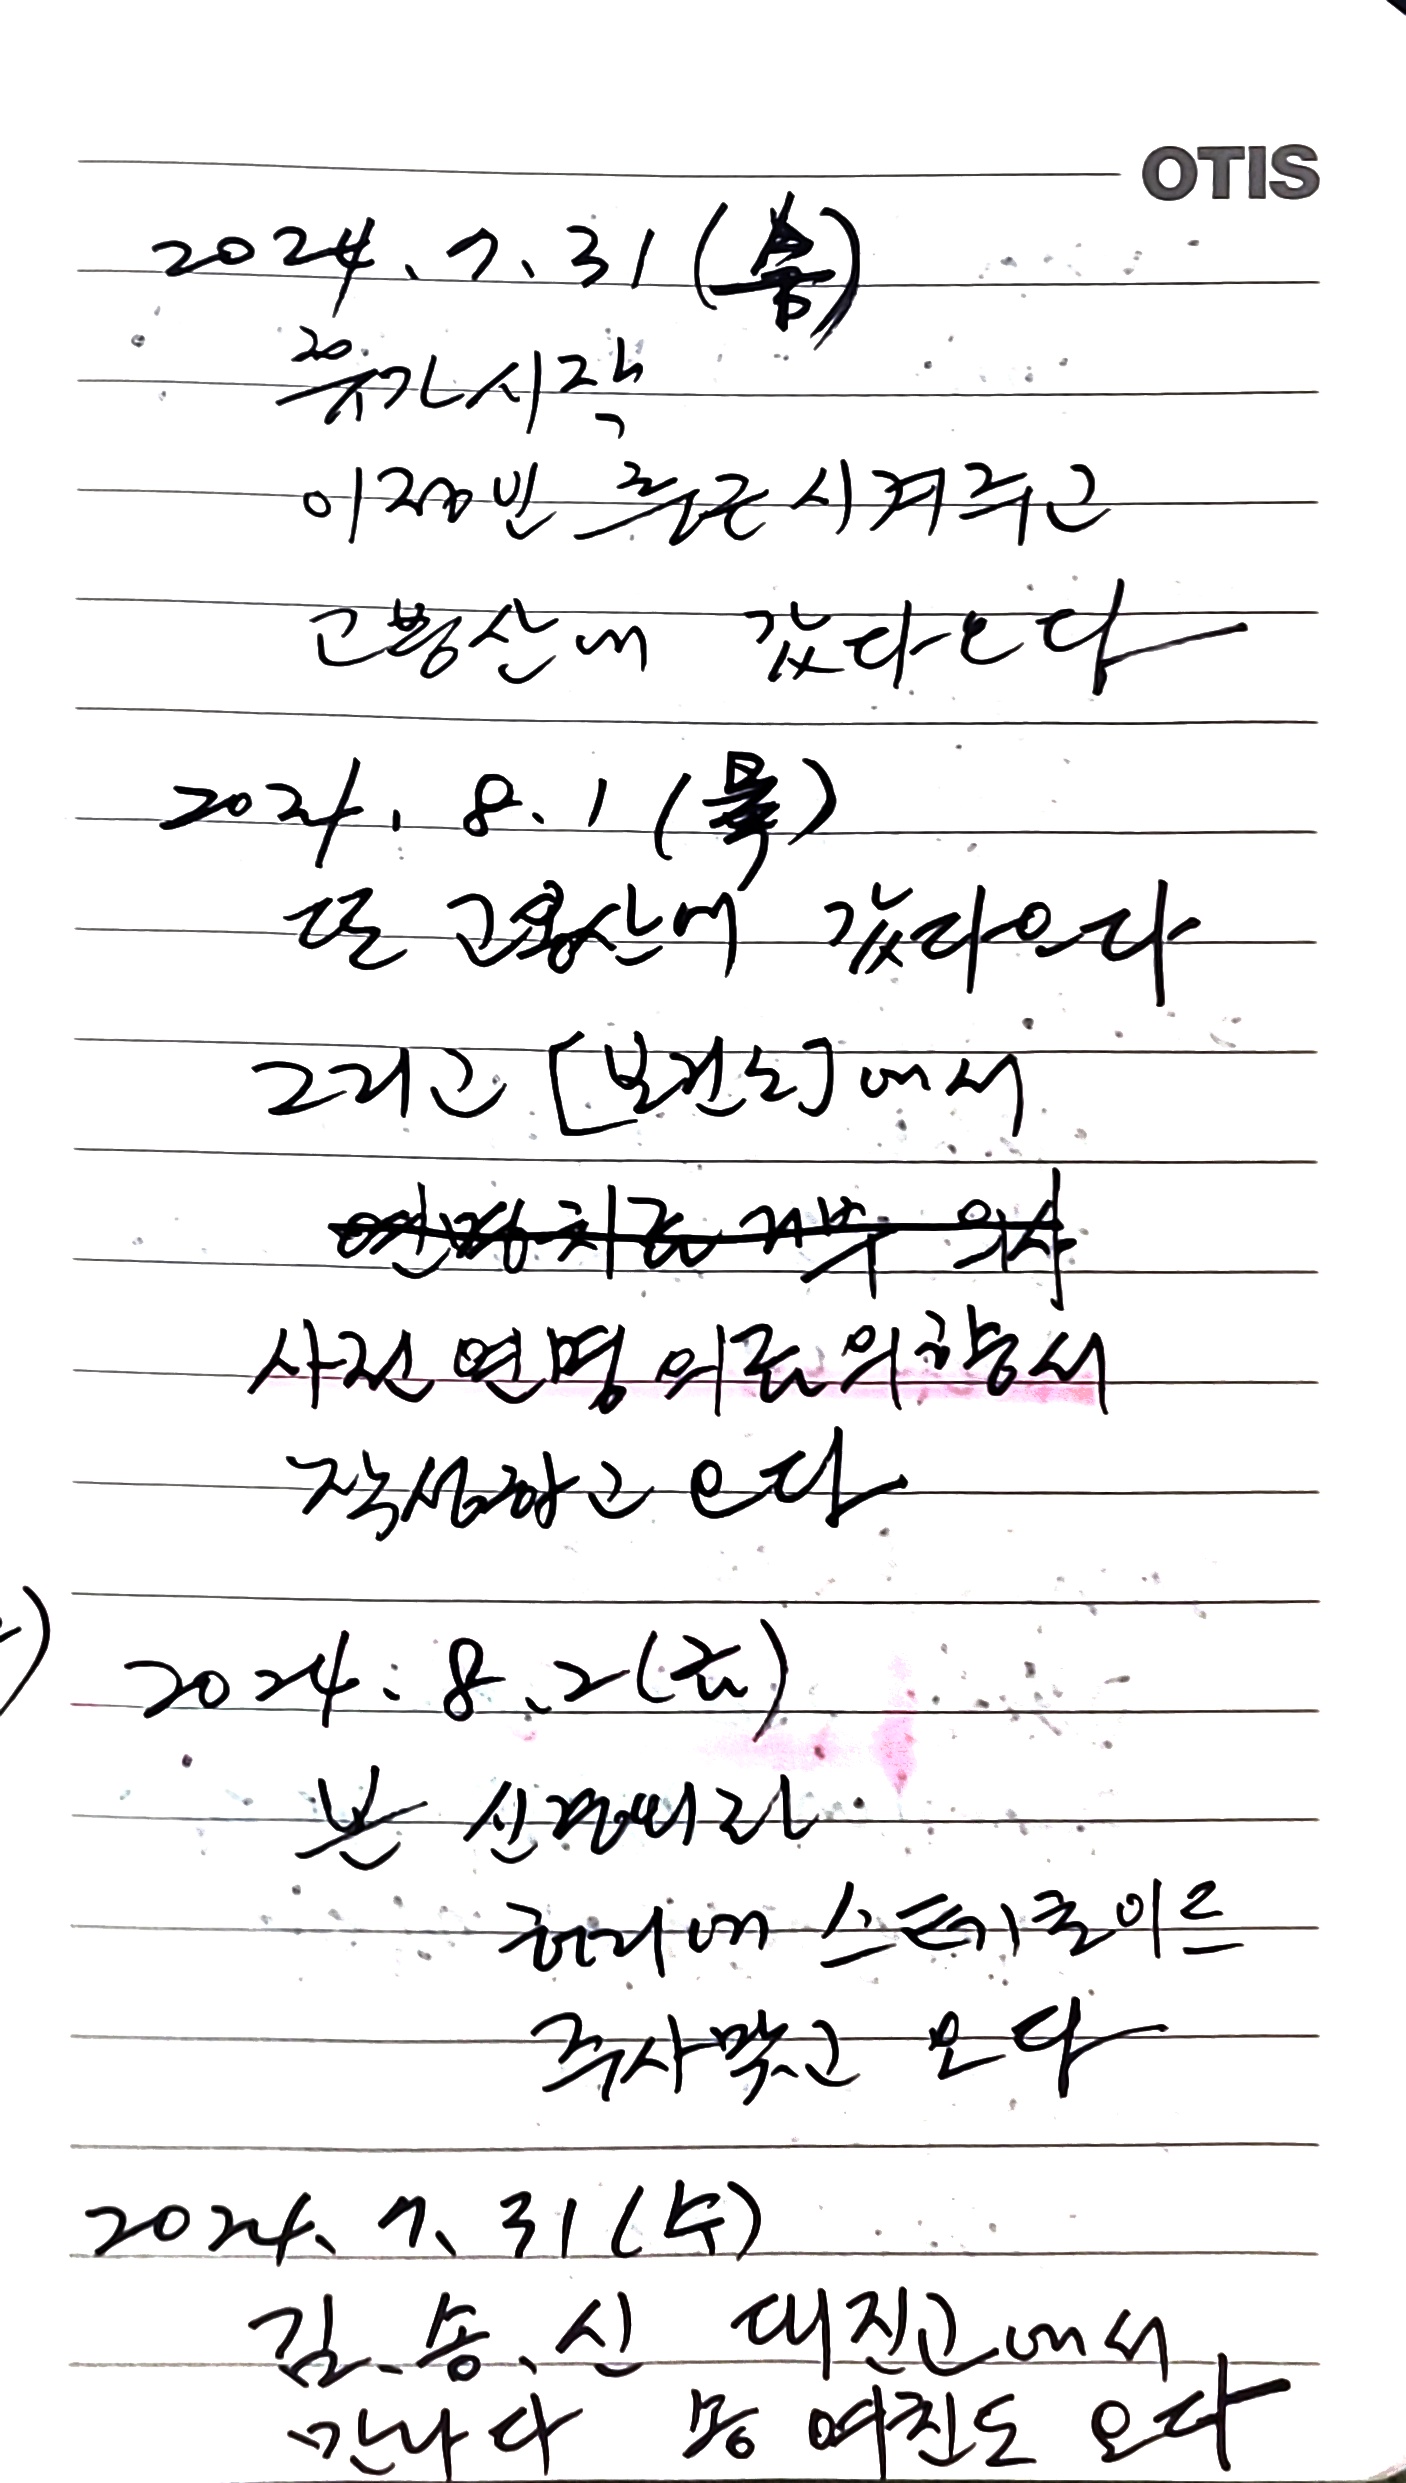 OTIS
2024. 7. 31 (수)
휴가 시작
출근 시켜주고
고봉산에 갔다온다
2024. 8. 1 (목)
또 고봉산에 갔다온다
그리고 [보건소]에서
사전연명의료의향서
작성하고 온다
2024. 8. 2 (금)
본 신경외과
허리에 스테로이드
주사맞고 온다
2024. 7. 31 (수)
김. 송. 신 대진고에서
만나다 송 여친도 온다